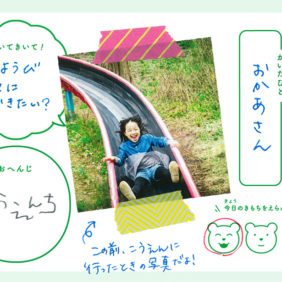 いてきいて!
ようび
に
きたい?
かいたひと
おかあさん
おへんじ
うえんち
この前、こうえんに
行ったときの写真だよ!
きょう
今日のきもちをえら